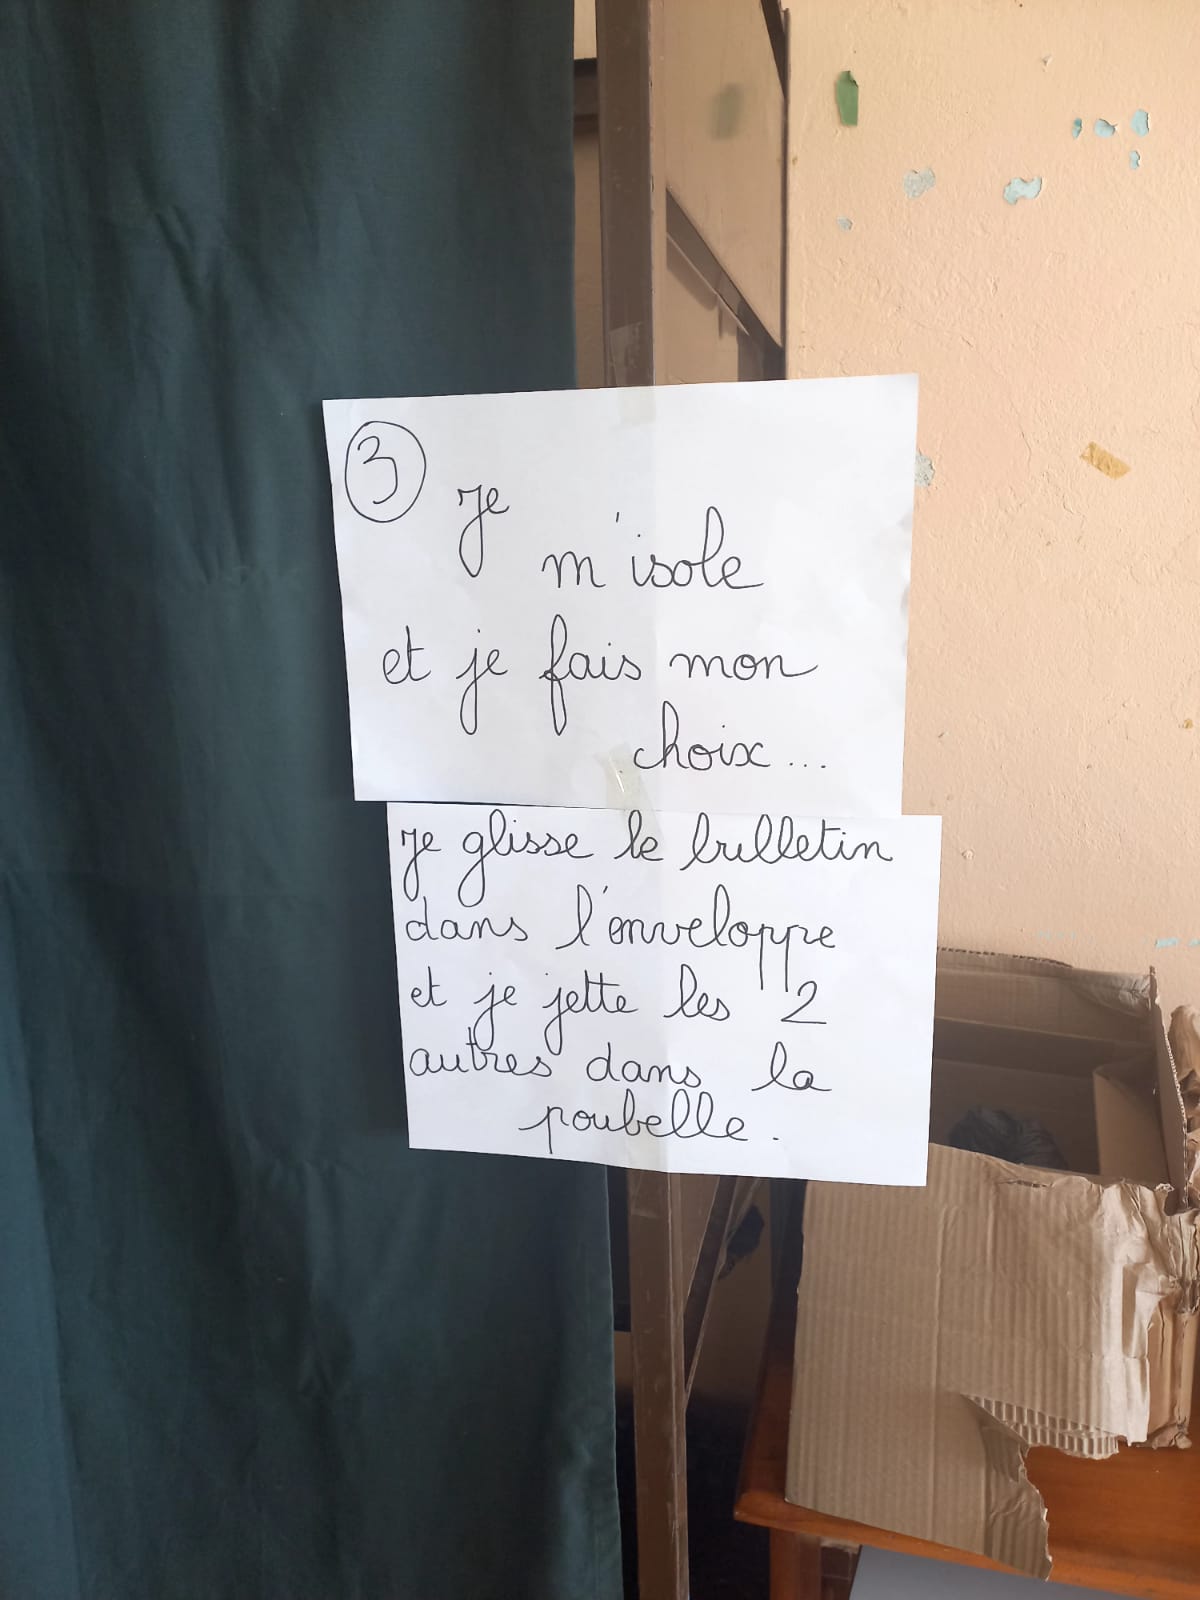 3
Je
m'isole
et je fais mon
choix...
Je glisse le bulletin
dans l'enveloppe
et je jette les 2
autres dans la
poubelle.